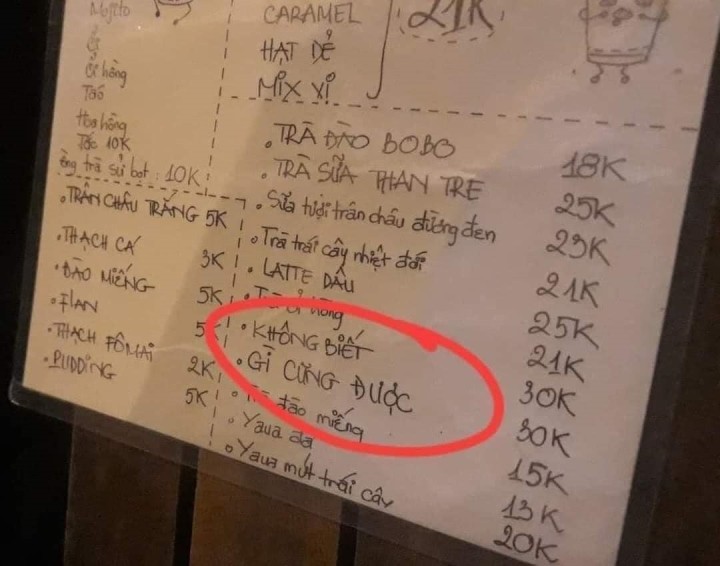 Mojito
ổi
ổi hồng
Táo
Hoa hồng
Tắc 10K
ồng trà sủi bọt : 10K
• TRÂN CHÂU TRẮNG 5K
• THẠCH CÁ 3K
• ĐÀO MIẾNG 5K
• FLAN 5K
• THẠCH FÔMAI 2K
• PUDDING 5K
CARAMEL
HẠT DẺ
MIX VỊ
21K
• TRÀ ĐÀO BOBO 18K
• TRÀ SỮA THAN TRE 25K
• Sữa tươi trân châu đường đen 23K
• Trà trái cây nhiệt đới 21K
• LATTE DÂU 25K
• Trà ổi hồng 21K
• KHÔNG BIẾT 30K
• GÌ CŨNG ĐƯỢC 30K
• Trà đào miếng 15K
• Yaua đá 13K
• Yaua mứt trái cây 20K